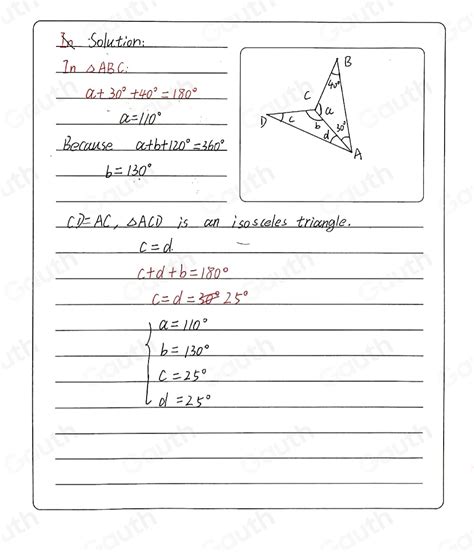 Solution:
In △ABC:
a+30°+40°=180°
a=110°
Because a+b+120°=360°
b=130°
B
40°
C
a
D
c
b
30°
d
A
CD=AC, △ACD is an isosceles triangle.
c=d.
c+d+b=180°
c=d=30° 25°
a=110°
b=130°
c=25°
d=25°
Gauth